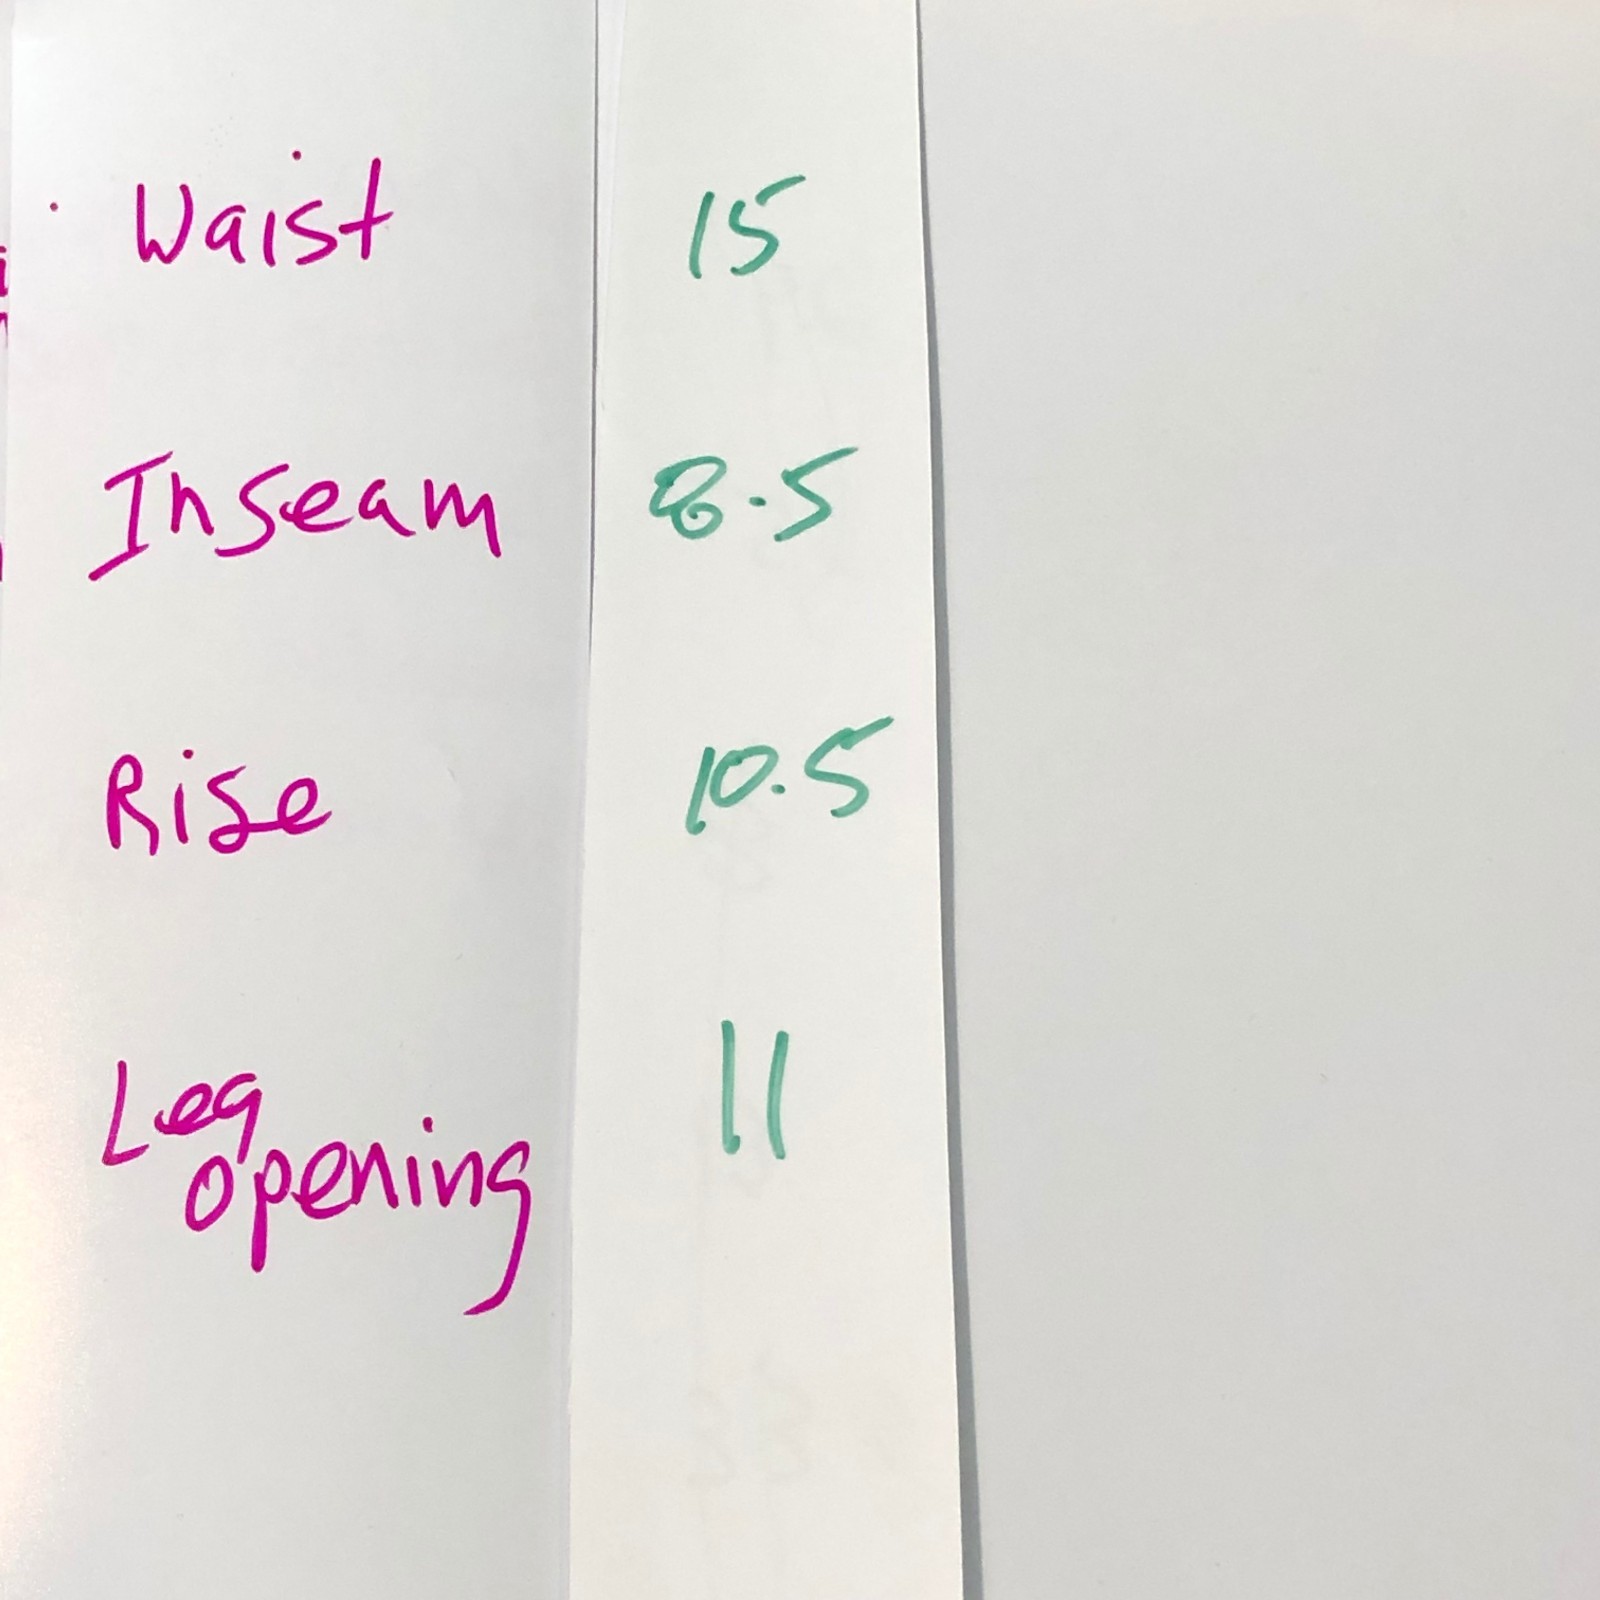 Waist 15
Inseam 8.5
Rise 10.5
Leg 11
opening